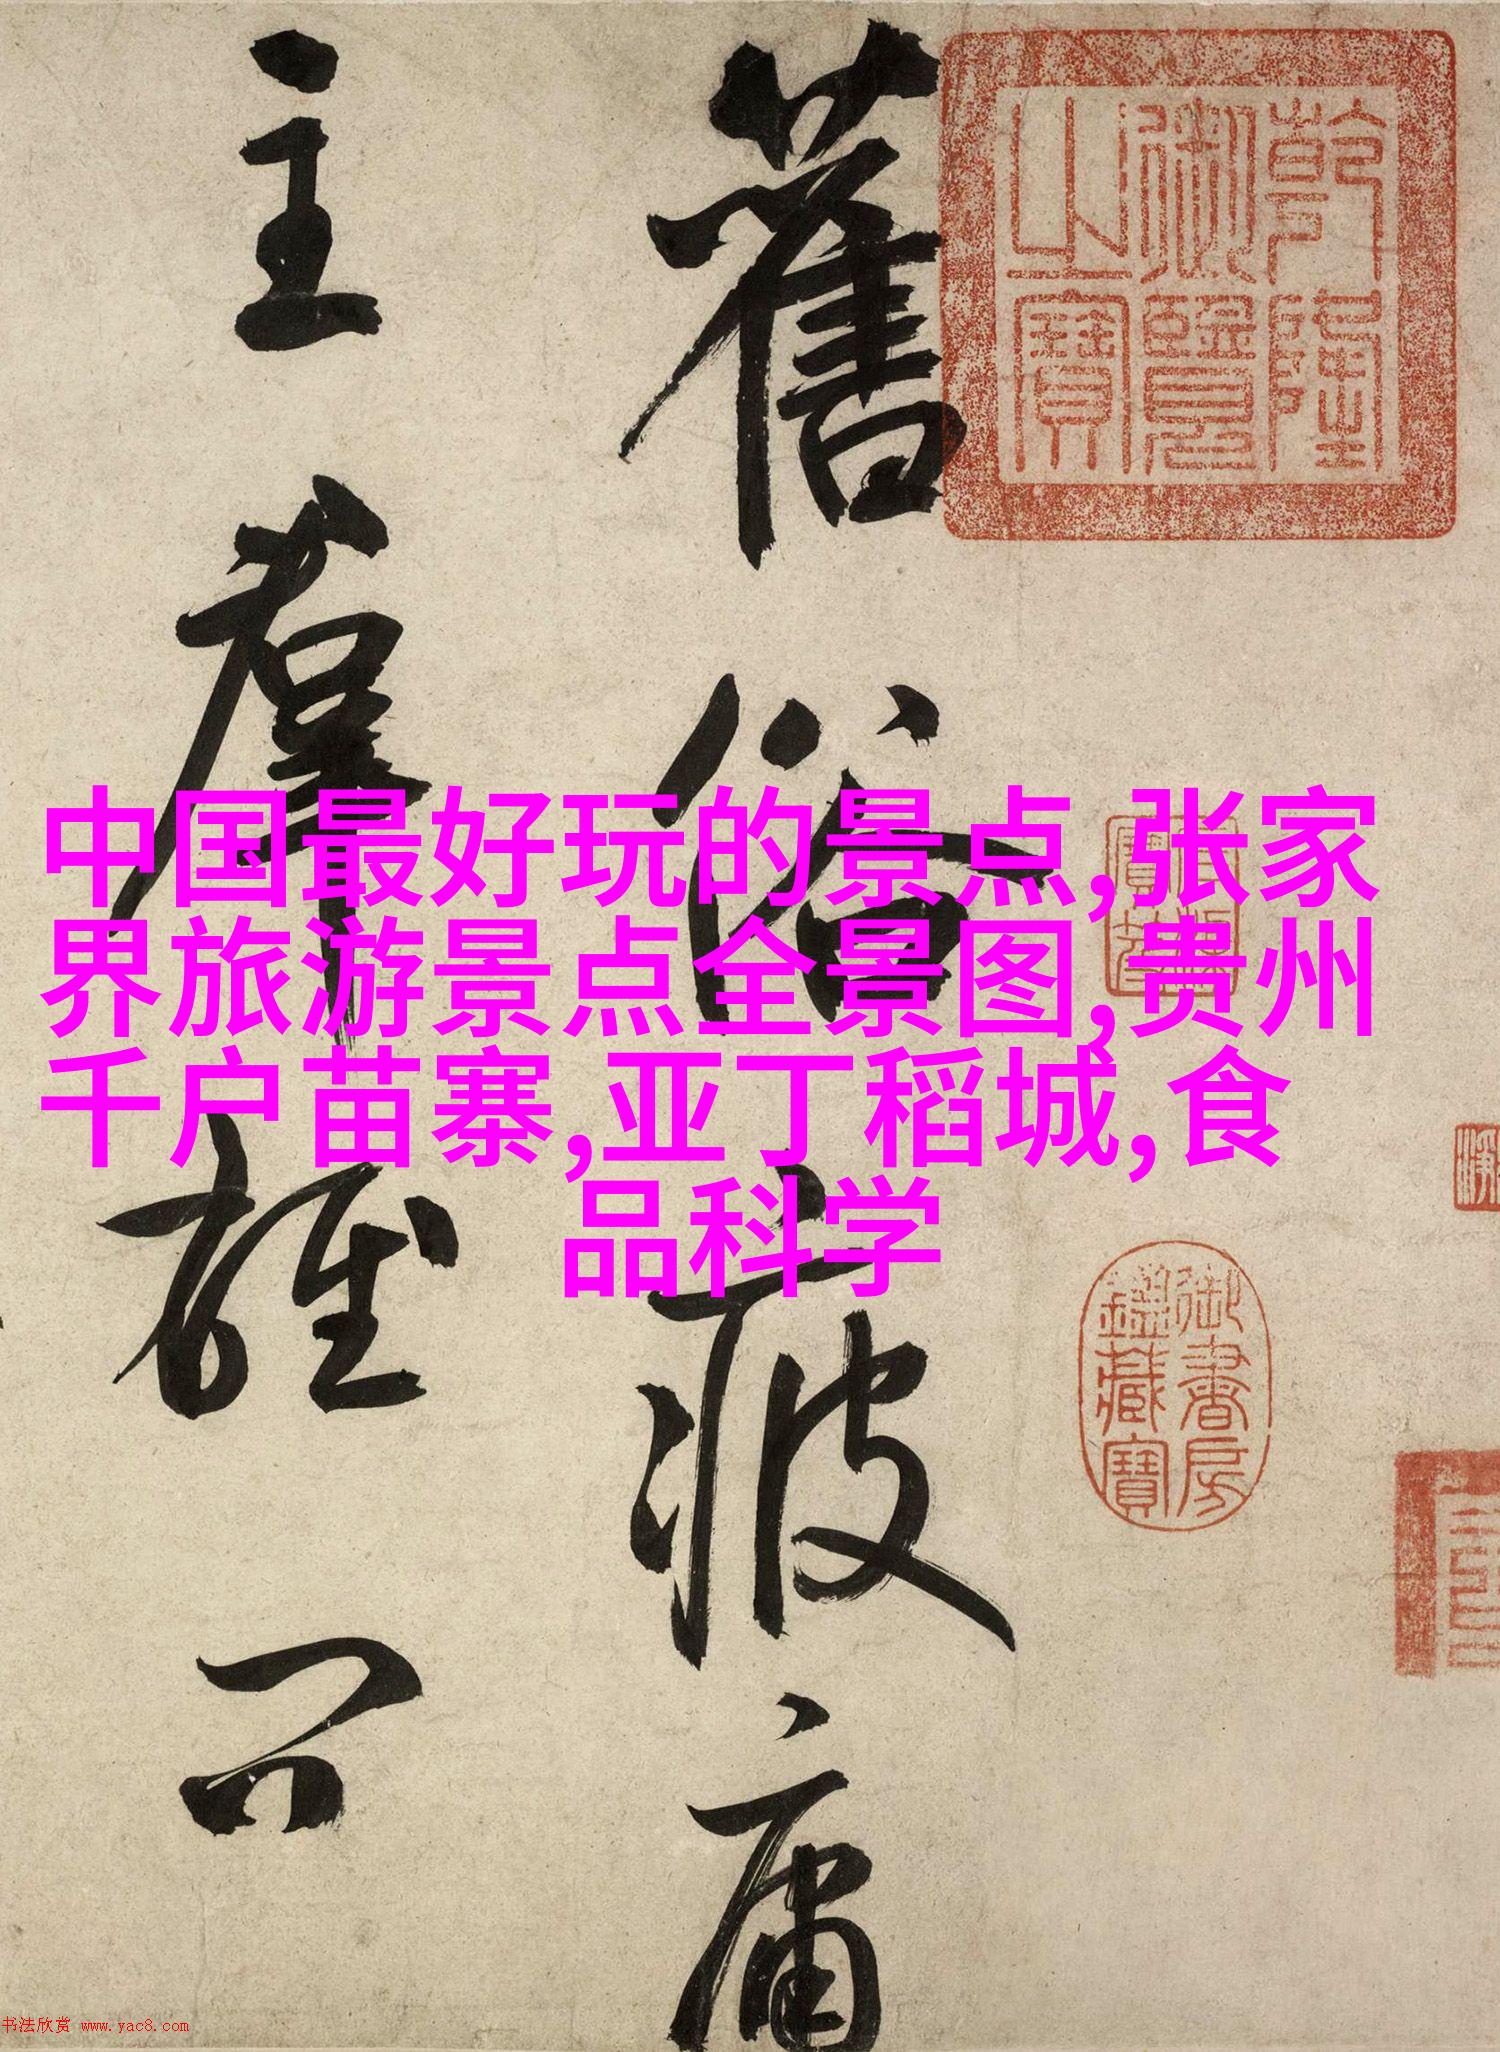 舊俗疲庸
主羣雄只
乾隆
御覽
之寶
御書房
鑑藏寶
中国最好玩的景点,张家
界旅游景点全景图,贵州
千户苗寨,亚丁稻城,食
品科学
书法欣赏 www.yac8.com